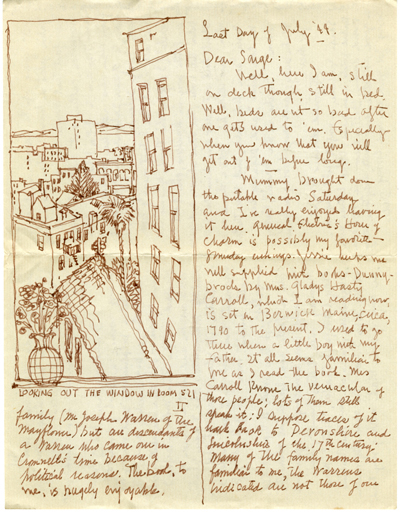 Last Day of July '44.
Dear Sarge:
Well, here I am, still
on deck though still in bed.
Well, beds are not so bad after
one gets used to 'em. Especially
when you know that you will
get out of 'em before long.
Mummy brought down
the portable radio Saturday
and I've really enjoyed having
it here. General Electric's House of
Charm is possibly my favorite
Sunday evenings. keeps me
well supplied with books - Dunny-
brook by Mrs. Gladys Hasty
Carroll, which I am reading now,
is set in Berwick Maine, circa
1790 to the present. I used to go
there when a little boy with my
father. It all seems familiar to
me as I read the book. Mrs
Carroll knows the vernacular of
those people; lots of them still
speak it. I suppose traces of it
hark back to Devonshire and
Lincolnshire of the 17th century.
Many of the family names are
familiar to me, the Warrens
indicated are not those of our
LOOKING OUT THE WINDOW IN ROOM 521
II
family (Mr Joseph Warren of the
Mayflower) but are descendants of
a Warren who came over in
Cromwell's time because of
political reasons. The book, to
me, is hugely enjoyable.